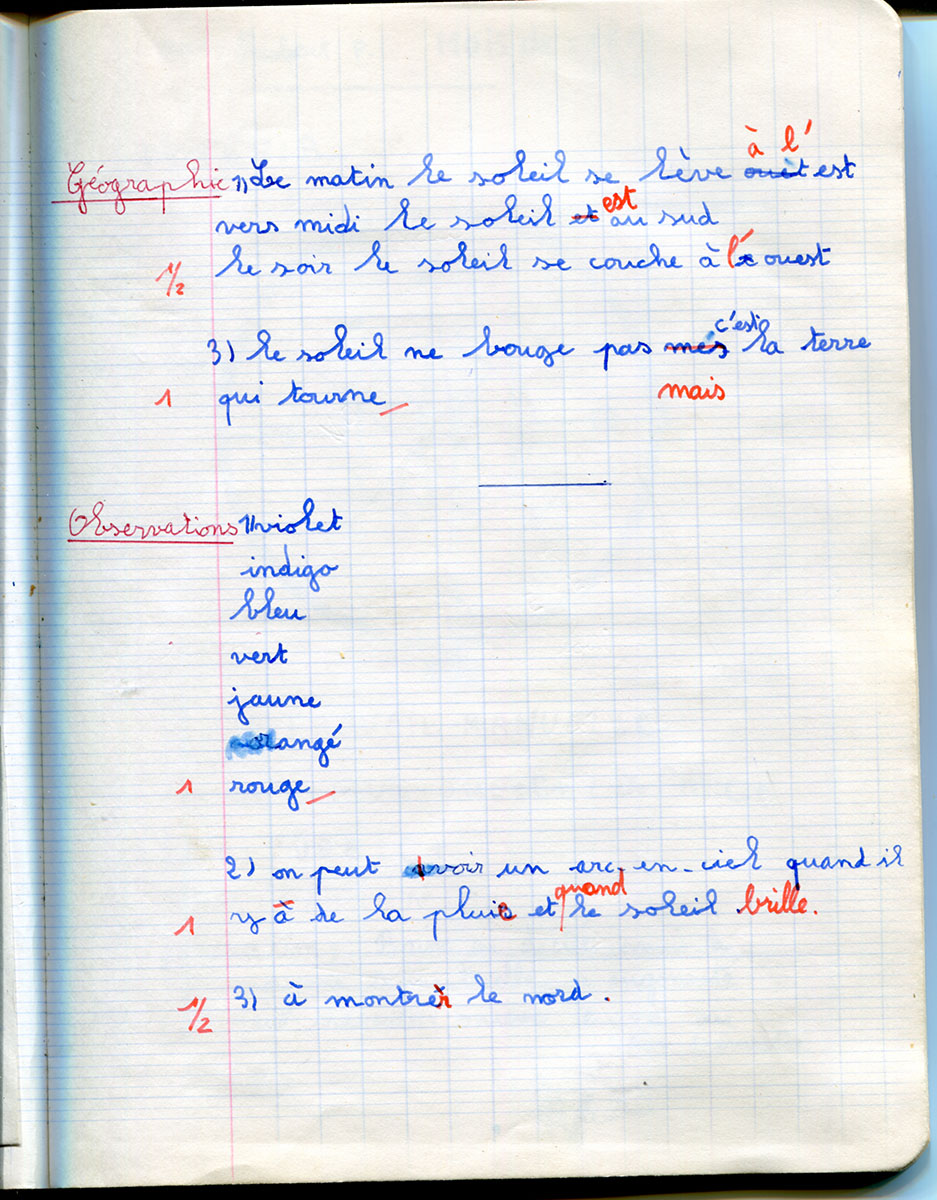 à l'
Géographie 1) Le matin le soleil se lève est
vers midi le soleil et est au sud
1/2 le soir le soleil se couche à l' ouest
c'est
3) le soleil ne bouge pas mes la terre
1 qui tourne mais
Observations 1) violet
indigo
bleu
vert
jaune
orangé
1 rouge
2) on peut avoir un arc-en-ciel quand il
quand
1 y à de la pluie et le soleil brille.
1/2 3) à montrer le nord.